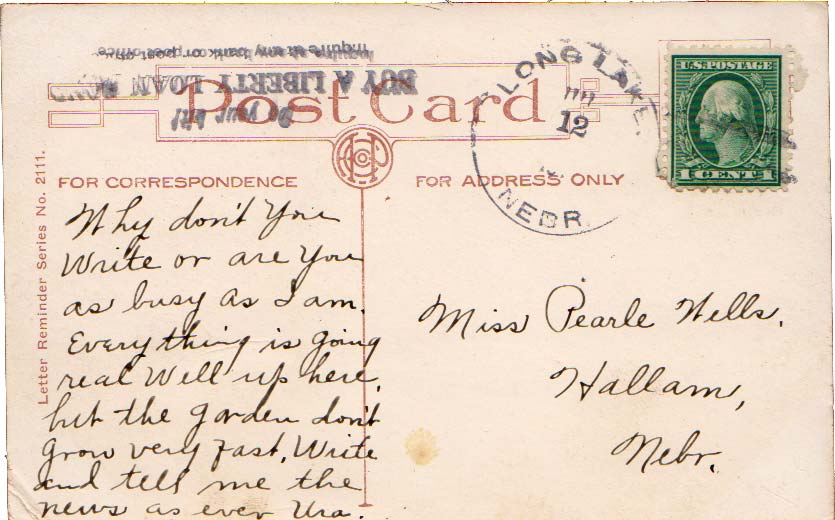 Inquire at any bank or post office
BUY A LIBERTY LOAN BOND
Do your bit!
Post Card
LONG LAKE,
12
NEBR.
U.S. POSTAGE
1 CENT 1
FOR CORRESPONDENCE
FOR ADDRESS ONLY
Letter Reminder Series No. 2111.
Why don't You
Write or are You
as busy as I am.
Everything is going
real Well up here,
but the garden don't
grow very fast. Write
and tell me the
news as ever Ura.
Miss Pearle Wells,
Hallam,
Nebr.